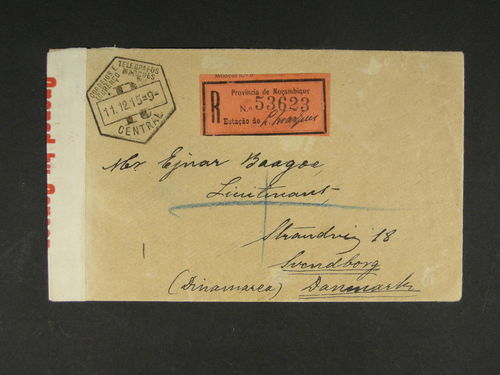 CORREIOS E TELEGRAFOS
LOURENÇO MARQUES
11.12.15=9-
CENTRAL
Opened by Censor
R
Provincia de Moçambique
N.º 53623
Estação de L. Marques
Mr Ejnar Baagoe,
Lieutenant,
Strandvej 18
Svendborg
(Dinamarca) Danmark